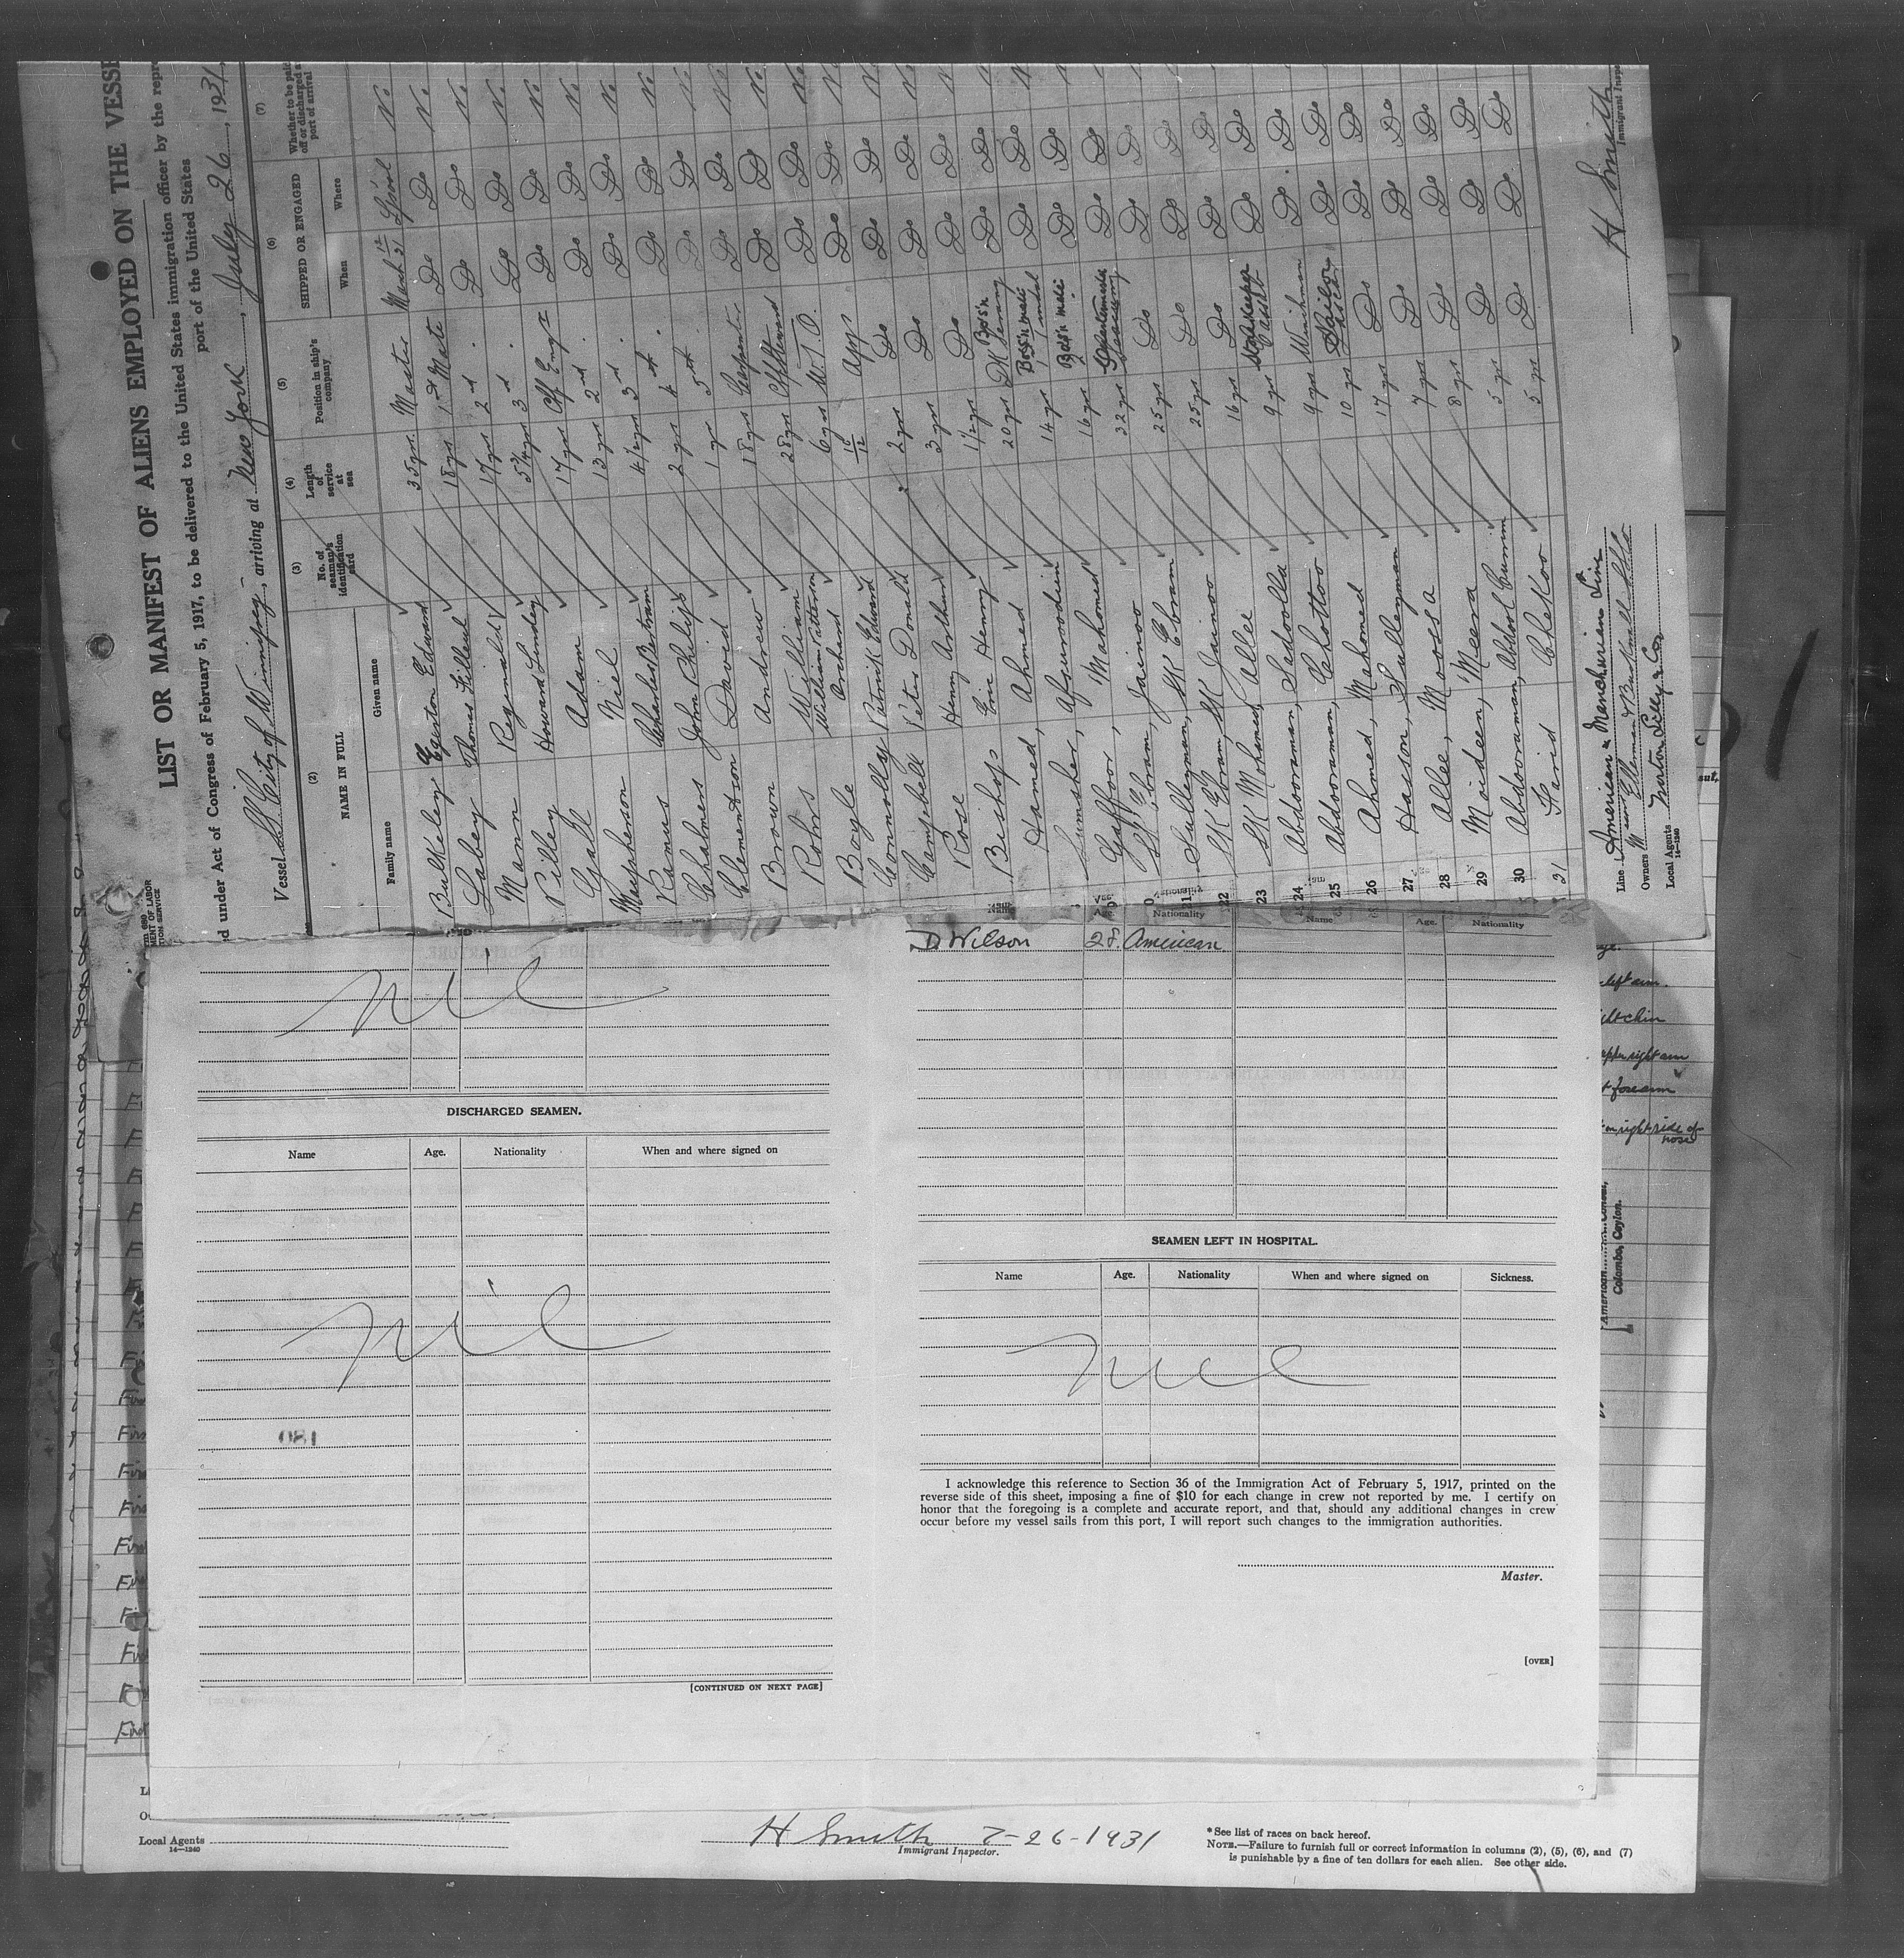 LIST OR MANIFEST OF ALIENS EMPLOYED ON THE VESSE
d under Act of Congress of February 5, 1917, to be delivered to the United States immigration officer by the repre
port of the United States
Vessel SS City of Winnipeg, arriving at New York, July 26, 1931.
(2) (3) (4) (5) (6) (7)
NAME IN FULL No. of seaman's identification card Length of service at sea Position in ship's company SHIPPED OR ENGAGED Whether to be paid off or discharged at port of arrival
Family name Given name When Where
Bulkeley Egerton Edward 35 yrs. Master March 21 L'pool No
Labey Thomas 18 yrs 1st Mate Do Do No
Mann Reginald 17 yrs 2nd Do Do No
Pilley Howard Lindley 5 3/4 yrs 3rd Do Do No
Gall Adam 17 yrs Cf Engr Do Do No
Macpherson Niel 13 yrs 2nd Do Do No
Ramus Charles Bertram 4 1/2 yrs 3rd Do Do No
Chalmers John Philip 2 yrs 4th Do Do No
Clementson David 1 yr 5th Do Do No
Brown Andrew 18 yrs Carpenter Do Do No
Rohrs William 28 yrs Ch Steward Do Do No
Boyle William Patterson Orchard 6 yrs W.T.O. Do Do No
Connolly Patrick Edward 10/12 App Do Do No
Campbell Peter Donald 2 yrs Do Do Do No
Rose Henry Arthur 3 yrs Do Do Do No
Bishop Eric Henry 1 1/2 yrs Do Do Do
Hamed, Ahmed 20 yrs Bos'n Do Do
Sumsher, Afsurroodin 14 yrs Bos'n mate Do Do
Gaffoor, Mahomed 16 yrs Bos'n mate Do Do
SK Ebram, Jainoo 32 yrs Do Do
Sulleyman, SK Ebram 25 yrs Do Do Do
22 SK Ebram, SK Jainoo 25 yrs Do Do Do
23 SK Mohamed, Allee 16 yrs Do Do Do
24 Abdooraman, Sadoolla 9 yrs Storekeeper Cassab Do Do
25 Abdooraman, Chottoo 9 yrs Winchman Do Do
26 Ahmed, Mahomed 10 yrs Sailor Lascar Do Do
27 Hasson, Sulleyman 17 yrs Do Do Do
28 Allee, Moossa 7 yrs Do Do Do
29 Maideen, Meera 8 yrs Do Do Do
30 Abdooraman, Abdool Currim 5 yrs Do Do Do
31 Farid Chekoo 5 yrs Do Do Do
Line American & Manchurian Line
Owners Ellerman & Bucknall SS Co
Local Agents Norton Lilly & Co
14—1240
H Smith
Immigrant Inspe
Name Age. Nationality Name Age. Nationality
D Wilson 28 American
Nil
DISCHARGED SEAMEN.
Name Age. Nationality When and where signed on
Nil
180
[CONTINUED ON NEXT PAGE]
SEAMEN LEFT IN HOSPITAL.
Name Age. Nationality When and where signed on Sickness.
Nil
I acknowledge this reference to Section 36 of the Immigration Act of February 5, 1917, printed on the
reverse side of this sheet, imposing a fine of $10 for each change in crew not reported by me. I certify on
honor that the foregoing is a complete and accurate report, and that, should any additional changes in crew
occur before my vessel sails from this port, I will report such changes to the immigration authorities.
Master.
[OVER]
left arm.
chin
upper right arm
forearm
on right side of
nose
Colombo, Ceylon.
Local Agents
14—1240
H Smith 7-26-1931
Immigrant Inspector.
*See list of races on back hereof.
NOTE.—Failure to furnish full or correct information in columns (2), (5), (6), and (7)
is punishable by a fine of ten dollars for each alien. See other side.